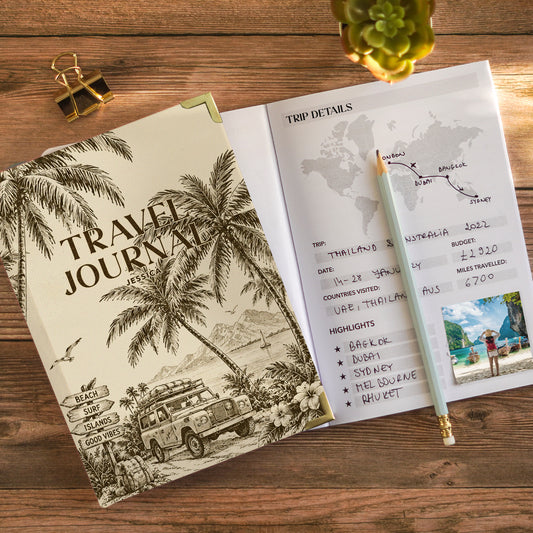 TRAVEL
JOURNAL
BEACH
SURF
ISLANDS
GOOD VIBES
TRIP DETAILS
LONDON
DUBAI
BANGKOK
SYDNEY
TRIP:
THAILAND & AUSTRALIA 2022
DATE:
BUDGET:
£2920
COUNTRIES VISITED:
UAE, THAILAND AUS
MILES TRAVELLED:
6700
HIGHLIGHTS
BAGKOK
DUBAI
SYDNEY
MELBOURNE
PHUKET